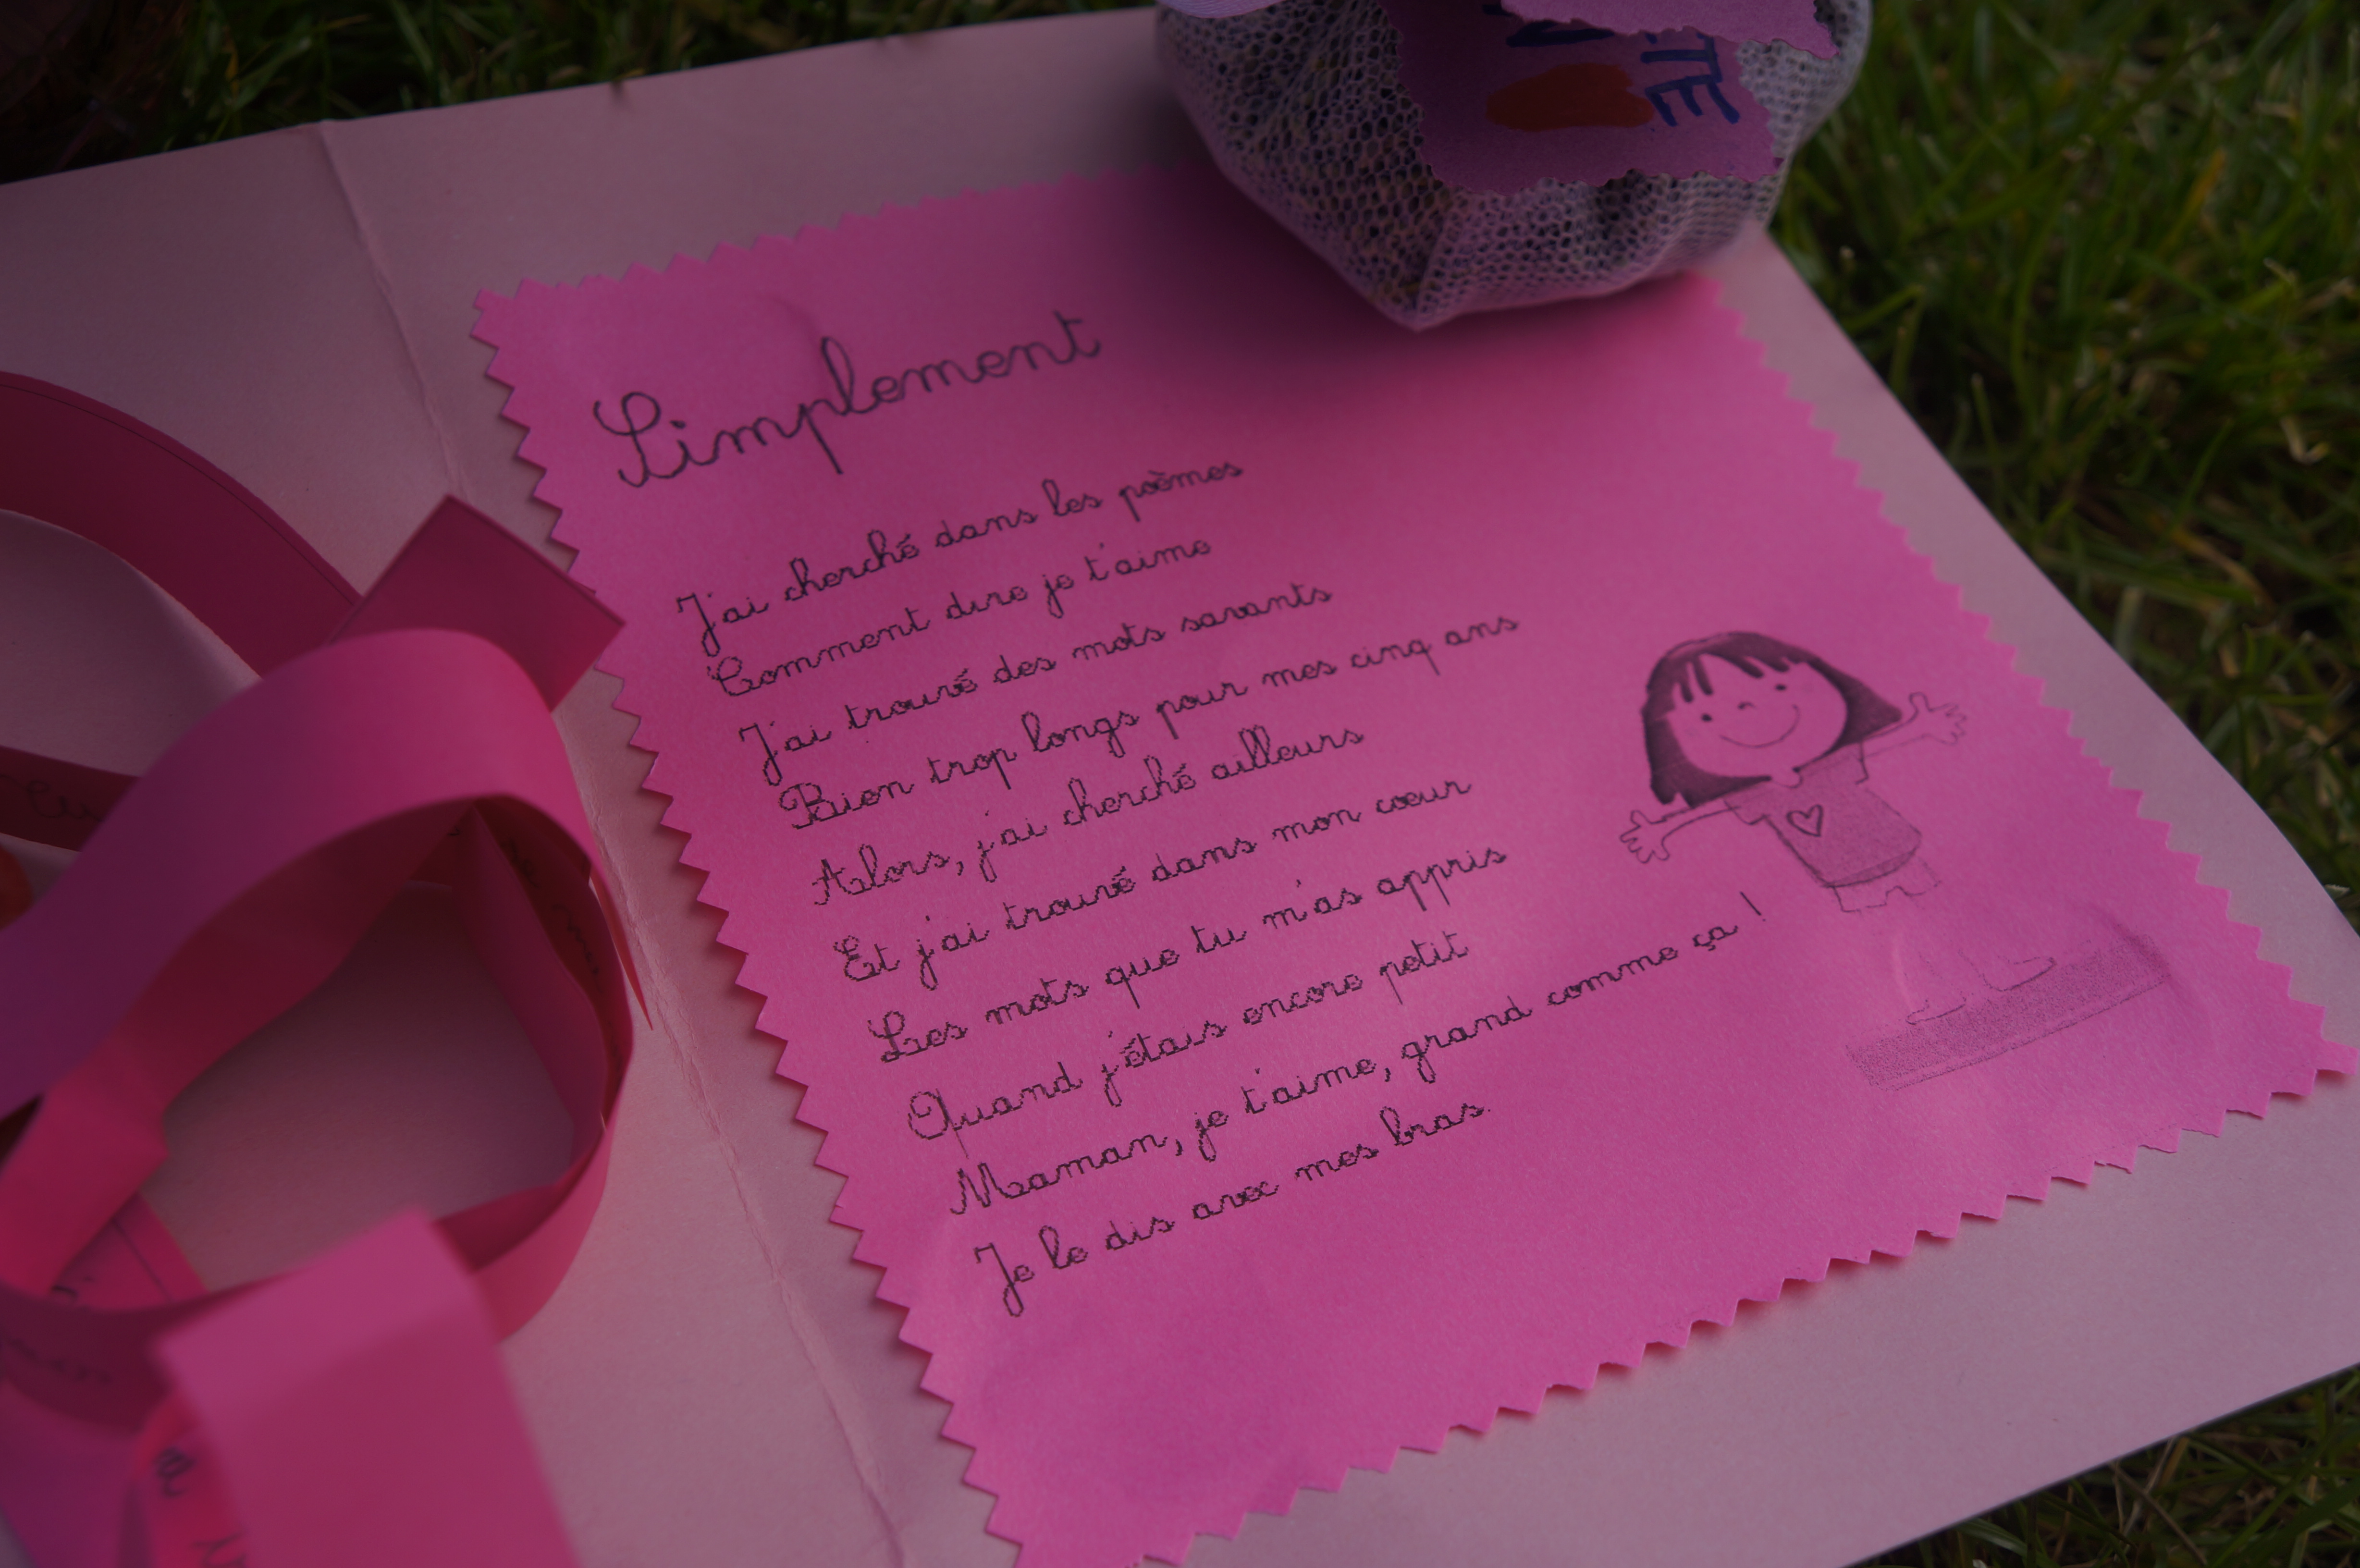 TE
Simplement
J'ai cherché dans les poèmes
Comment dire je t'aime
J'ai trouvé des mots savants
Bien trop longs pour mes cinq ans
Alors, j'ai cherché ailleurs
Et j'ai trouvé dans mon cœur
Les mots que tu m'as appris
Quand j'étais encore petit
Maman, je t'aime, grand comme ça !
Je le dis avec mes bras.